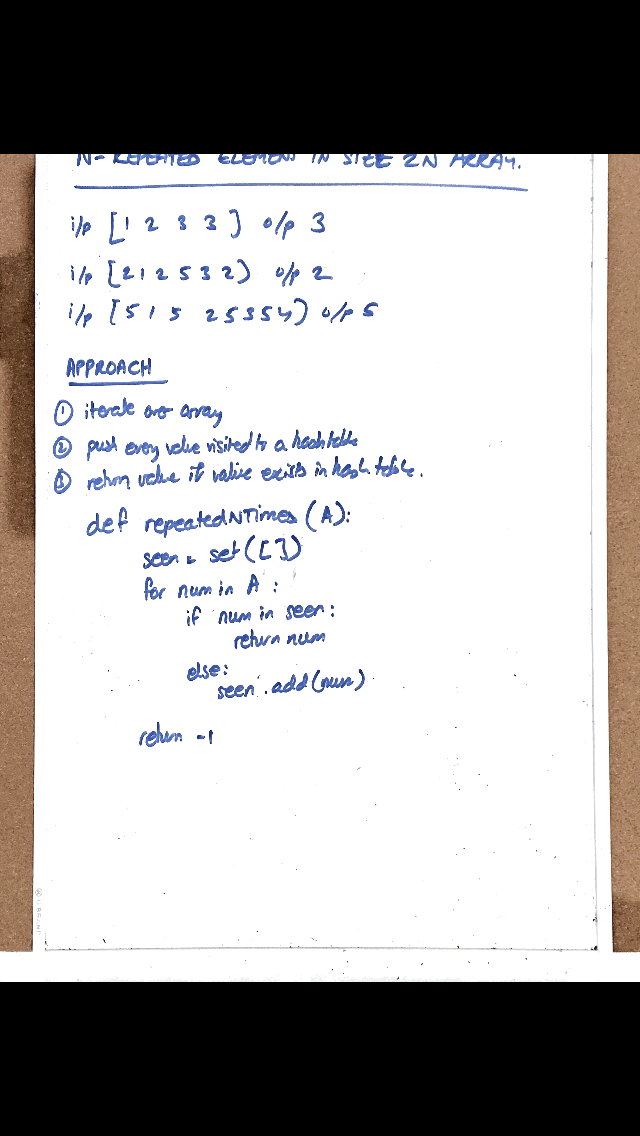 N-REPEATED ELEMENT IN SIZE 2N ARRAY.
i/p [1 2 3 3] o/p 3
i/p [2 1 2 5 3 2) o/p 2
i/p [5 1 5 2 5 3 5 4) o/p 5
APPROACH
① iterate over array
② push every value visited to a hash table
③ return value if value exists in hash table.
def repeatedNTimes (A):
seen = set([])
for num in A :
if num in seen:
return num
else:
seen .add(num)
return -1